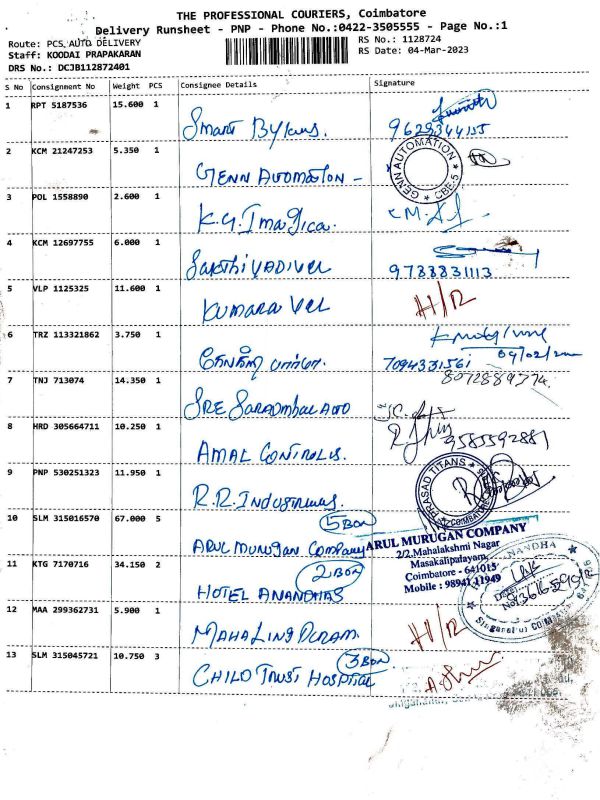 THE PROFESSIONAL COURIERS, Coimbatore
Delivery Runsheet - PNP - Phone No.:0422-3505555 - Page No.:1
Route: PCS AUTO DELIVERY
RS No.: 1128724
Staff: KOODAI PRAPAKARAN
RS Date: 04-Mar-2023
DRS No.: DCJB112872401
S No Consignment No Weight PCS Consignee Details Signature
1 RPT 5187536 15.600 1
Smart
9629344155
2 KCM 21247253 5.350 1
GENN AUTOMATION -
GENN AUTOMATION CBE-5
3 POL 1558890 2.600 1
K.G. Imagica.
4 KCM 12697755 6.000 1
SAKTHIVADIVEL
9788831113
5 VLP 1125325 11.600 1
KUMARA VEL
H/R
6 TRZ 113321862 3.750 1
7094331561
7 TNJ 713074 14.350 1
8072889774
SRE AUTO
8 HRD 305664711 10.250 1
9585592881
AMAL CONTROLS.
9 PNP 530251323 11.950 1
PRASAD TITANS
R.R. INDUSTRIES
10 SLM 315016570 67.000 5
5 BOX
ARUL MURUGAN COMPANY
ARUL MURUGAN COMPANY
2/2, Mahalakshmi Nagar
Masakalipalayam,
Coimbatore - 641015
Mobile : 98941 11949
11 KTG 7170716 34.150 2
2 BOX
HOTEL ANANDHAS
12 MAA 299362731 5.900 1
MAHALINGPURAM.
H/R
13 SLM 315045721 10.750 3
3 BOX
CHILD TRUST HOSPITAL